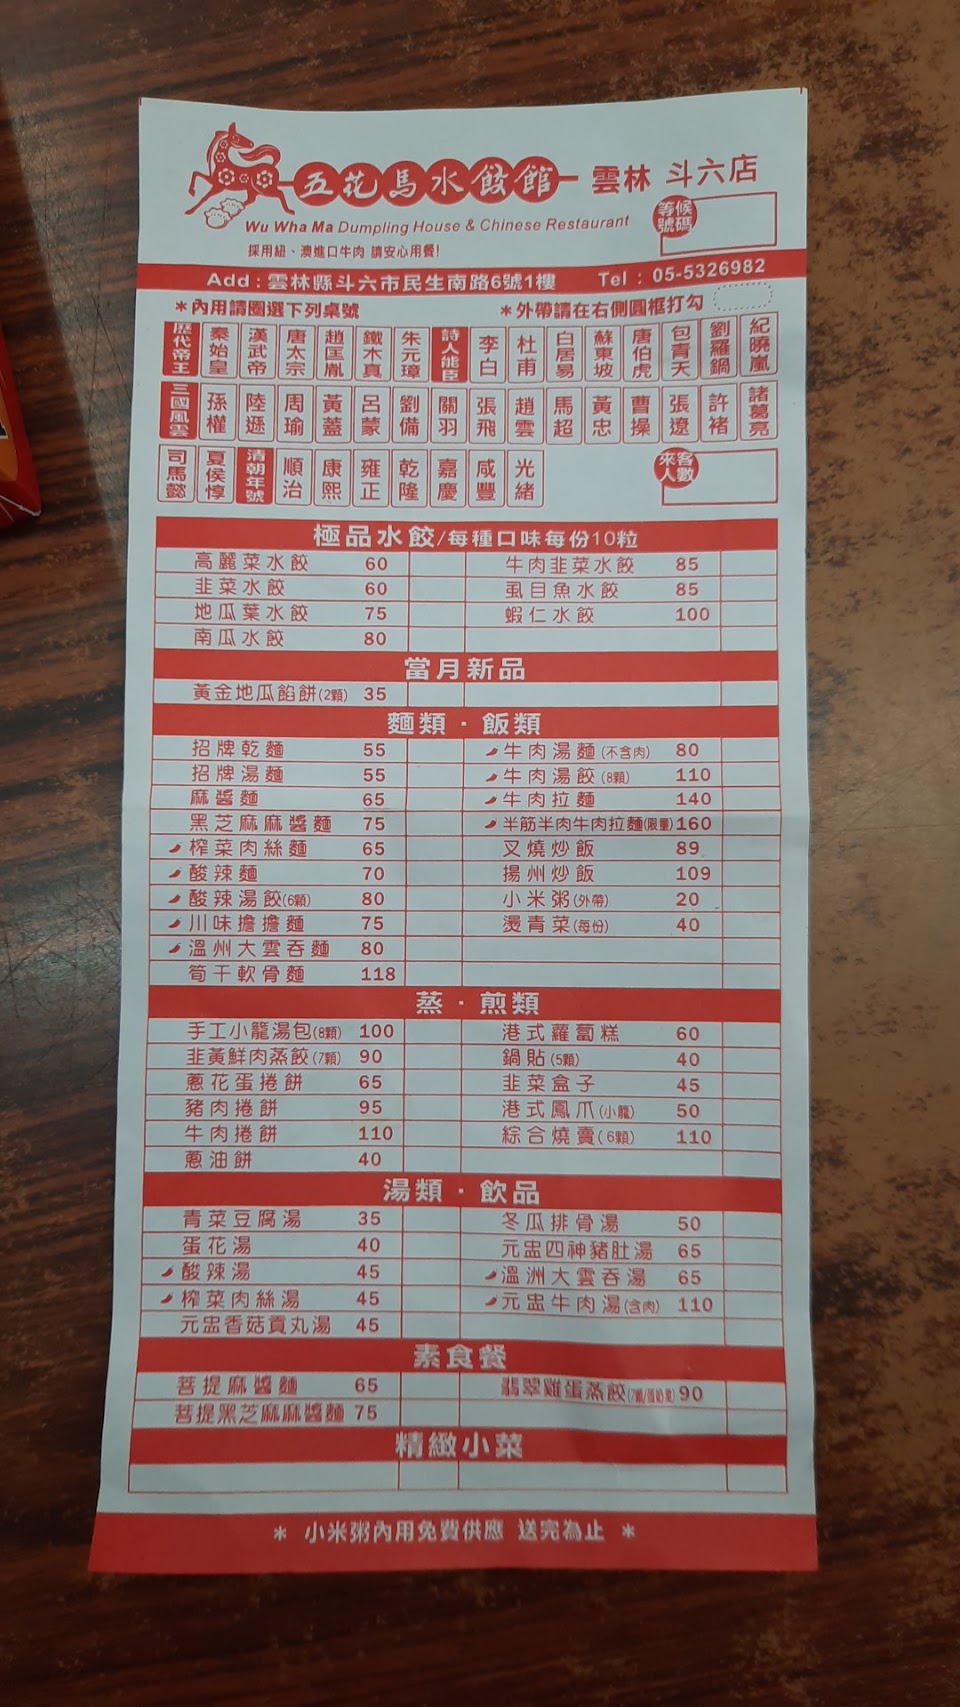 五花馬水餃館 雲林 斗六店
Wu Wha Ma Dumpling House & Chinese Restaurant
等候號碼
採用紐、澳進口牛肉 請安心用餐!
Add：雲林縣斗六市民生南路6號1樓 Tel：05-5326982
＊內用請圈選下列桌號 ＊外帶請在右側圓框打勾
歷代帝王 秦始皇 漢武帝 唐太宗 趙匡胤 鐵木真 朱元璋 詩人能臣 李白 杜甫 白居易 蘇東坡 唐伯虎 包青天 劉羅鍋 紀曉嵐
三國風雲 孫權 陸遜 周瑜 黃蓋 呂蒙 劉備 關羽 張飛 趙雲 馬超 黃忠 曹操 張遼 許褚 諸葛亮
司馬懿 夏侯惇 清朝年號 順治 康熙 雍正 乾隆 嘉慶 咸豐 光緒 來客人數
極品水餃/每種口味每份10粒
高麗菜水餃 60 牛肉韭菜水餃 85
韭菜水餃 60 虱目魚水餃 85
地瓜葉水餃 75 蝦仁水餃 100
南瓜水餃 80
當月新品
黃金地瓜餡餅(2顆) 35
麵類・飯類
招牌乾麵 55 牛肉湯麵(不含肉) 80
招牌湯麵 55 牛肉湯餃(8顆) 110
麻醬麵 65 牛肉拉麵 140
黑芝麻麻醬麵 75 半筋半肉牛肉拉麵(限量) 160
榨菜肉絲麵 65 叉燒炒飯 89
酸辣麵 70 揚州炒飯 109
酸辣湯餃(6顆) 80 小米粥(外帶) 20
川味擔擔麵 75 燙青菜(每份) 40
溫州大雲吞麵 80
筍干軟骨麵 118
蒸・煎類
手工小籠湯包(8顆) 100 港式蘿蔔糕 60
韭黃鮮肉蒸餃(7顆) 90 鍋貼(5顆) 40
蔥花蛋捲餅 65 韭菜盒子 45
豬肉捲餅 95 港式鳳爪(小籠) 50
牛肉捲餅 110 綜合燒賣(6顆) 110
蔥油餅 40
湯類・飲品
青菜豆腐湯 35 冬瓜排骨湯 50
蛋花湯 40 元盅四神豬肚湯 65
酸辣湯 45 溫洲大雲吞湯 65
榨菜肉絲湯 45 元盅牛肉湯(含肉) 110
元盅香菇貢丸湯 45
素食餐
菩提麻醬麵 65 翡翠雞蛋蒸餃 90
菩提黑芝麻麻醬麵 75
精緻小菜
＊ 小米粥內用免費供應 送完為止 ＊